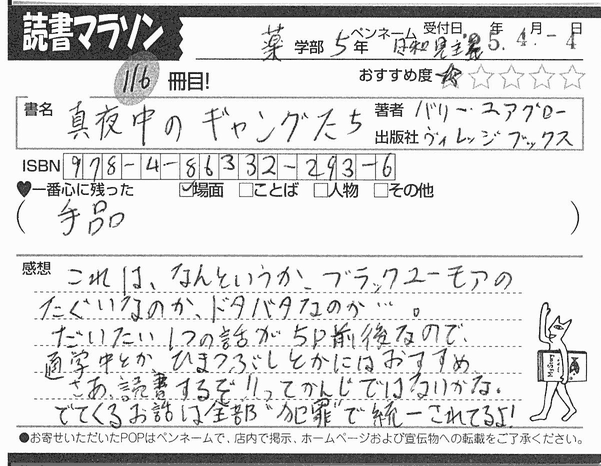 読書マラソン
薬 学部 5年 ペンネーム 日和見主義 受付日 '05年 4月 -4日
116 冊目!
おすすめ度 ★☆☆☆☆
書名 真夜中のギャングたち 著者 バリー・ユアグロー
出版社 ヴィレッジブックス
ISBN 978-4-86332-293-6
♥一番心に残った ☑場面 □ことば □人物 □その他
(手品)
感想 これは、なんというか、ブラックユーモアの
たぐいなのか、ドタバタなのか…。
だいたい1つの話が5P前後なので、
通学中とか、ひまつぶしとかにはおすすめ。
さあ、読書するぞ!!ってかんじではないかな。
でてくるお話は全部"犯罪"で統一されてるよ!
●お寄せいただいたPOPはペンネームで、店内で掲示、ホームページおよび宣伝物への転載をご了承ください。